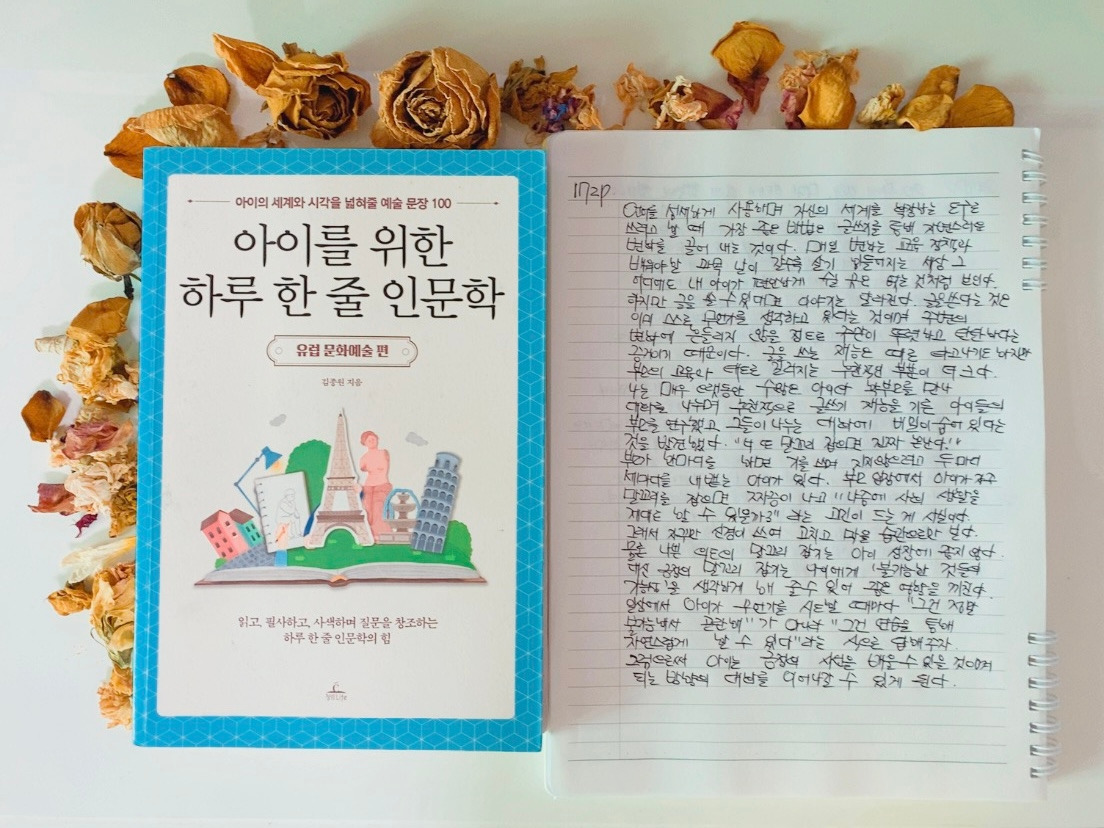 아이의 세계와 시각을 넓혀줄 예술 문장 100
아이를 위한
하루 한 줄 인문학
유럽 문화예술 편
김종원 지음
읽고, 필사하고, 사색하며 질문을 창조하는
하루 한 줄 인문학의 힘
172P
언어를 섬세하게 사용하며 자신의 세계를 확장하는 도구로
쓰려고 할 때 가장 좋은 방법은 글쓰기를 통해 자연스러운
변화를 끌어 내는 것이다. 매년 변하는 교육 정책과
배워야 할 과목 날이 갈수록 살기 힘들어지는 세상 그
어디에도 내 아이가 편안하게 쉴 곳은 없는 것처럼 보인다.
하지만 글을 쓸 수 있다면 이야기는 달라진다. 글을 쓴다는 것은
이미 스스로 무언가를 생각하고 있다는 것이며 주변의
변화에 흔들리지 않을 정도로 주관이 뚜렷하고 단단하다는
증거이기 때문이다. 글을 쓰는 재능은 따로 타고나기도 하지만
부모의 교육과 태도로 길러지는 후천적인 부분이 더 크다.
나는 매우 오랫동안 수많은 아이와 부모를 만나
대화를 나누며 후천적으로 글쓰기 재능을 기른 아이들의
부모를 연구했고 그들이 나누는 대화에 비밀이 숨어 있다는
것을 발견했다. "너 또 말꼬리 잡으면 진짜 혼난다!"
부모가 한마디를 하면 기를 쓰며 지지않으려고 두 마디
세 마디를 내뱉는 아이가 있다. 부모 입장에서 아이가 자꾸
말꼬리를 잡으면 짜증이 나고 "나중에 사회 생활을
제대로 할 수 있을까?" 라는 고민이 드는 게 사실이다.
그래서 자꾸만 신경이 쓰여 고치고 싶은 습관이기만 하다.
물론 나쁜 의도의 말꼬리 잡기는 아이 성장에 좋지 않다.
대신 긍정의 말꼬리 잡기는 아이에게 '불가능한 것들의
가능성'을 생각하게 해 줄 수 있어 좋은 영향을 끼친다.
일상에서 아이가 무언가를 시도할 때마다 "그건 정말
불가능해서 곤란해"가 아니라 "그건 연습을 통해
자연스럽게 할 수 있다"라는 식으로 답해주자.
그럼으로써 아이는 긍정의 시선을 배울 수 있을 것이며
되는 방향의 대화를 이어나갈 수 있게 된다.